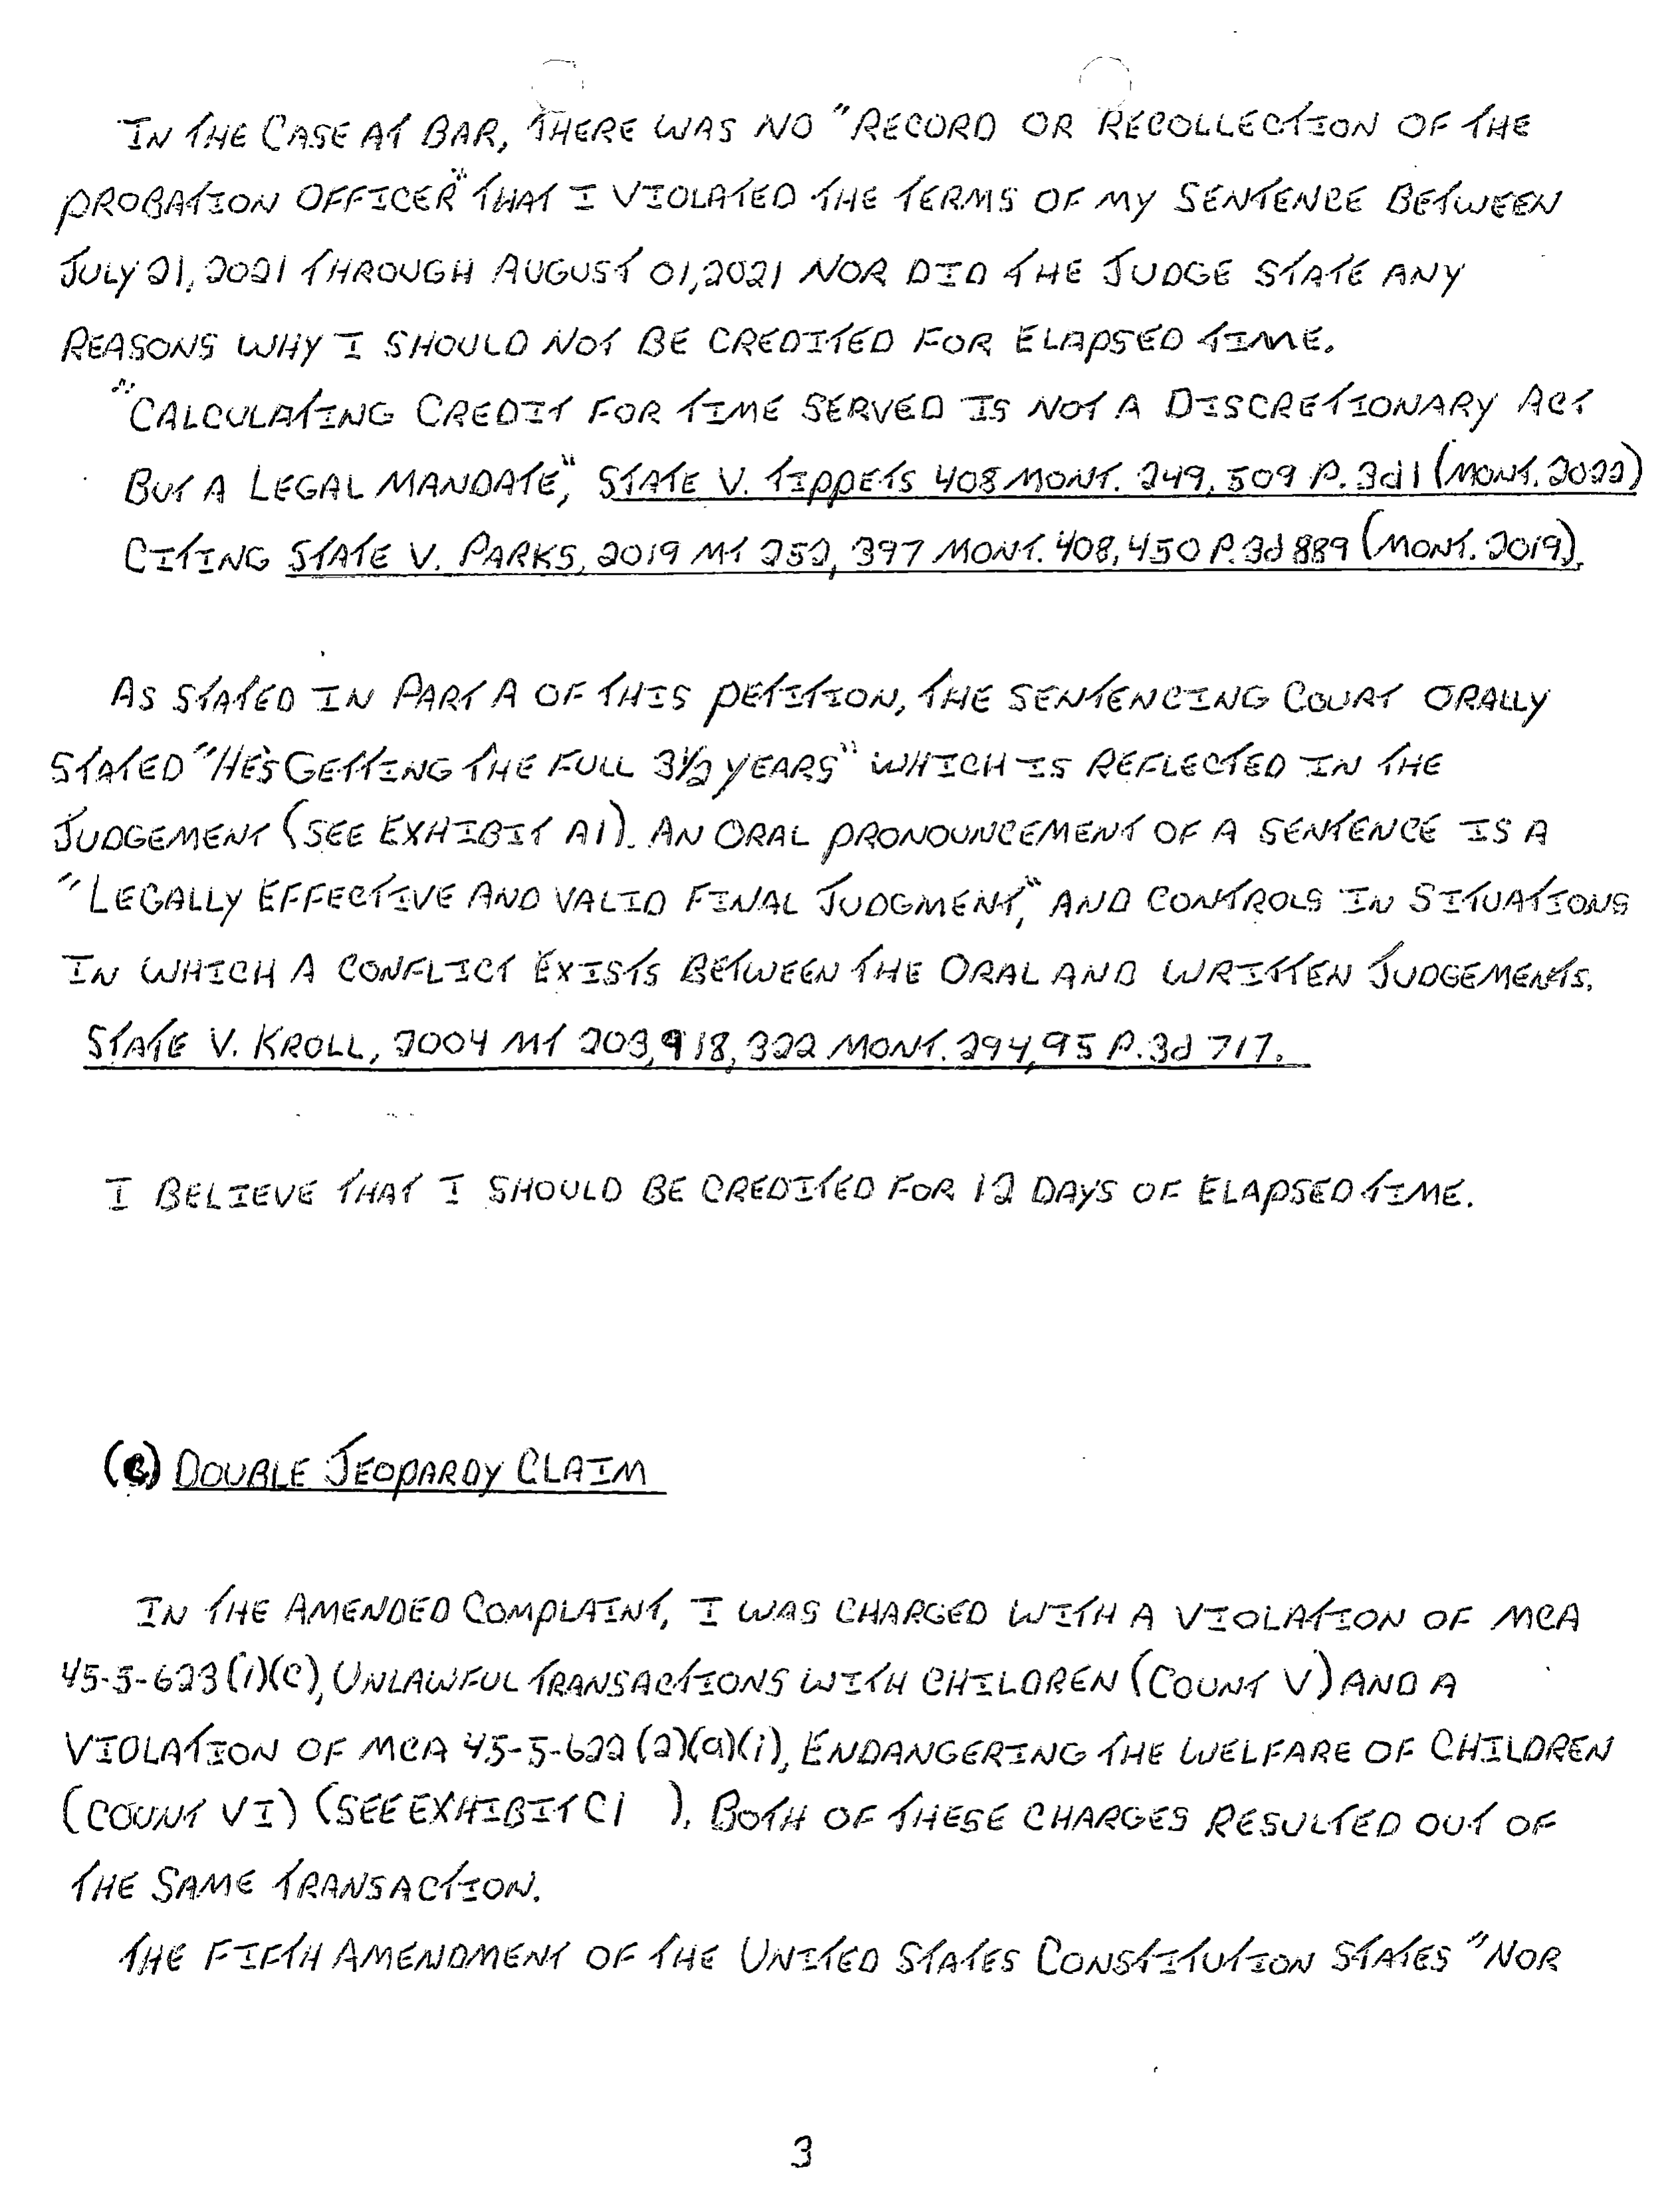 IN THE CASE AT BAR, THERE WAS NO "RECORD OR RECOLLECTION OF THE
PROBATION OFFICER" THAT I VIOLATED THE TERMS OF MY SENTENCE BETWEEN
JULY 21, 2021 THROUGH AUGUST 01, 2021 NOR DID THE JUDGE STATE ANY
REASONS WHY I SHOULD NOT BE CREDITED FOR ELAPSED TIME.
"CALCULATING CREDIT FOR TIME SERVED IS NOT A DISCRETIONARY ACT
BUT A LEGAL MANDATE", STATE V. TIPPETS 408 MONT. 249, 509 P.3d 1 (MONT. 2022)
CITING STATE V. PARKS, 2019 MT 252, 397 MONT. 408, 450 P.3d 889 (MONT. 2019).
AS STATED IN PART A OF THIS PETITION, THE SENTENCING COURT ORALLY
STATED "HE'S GETTING THE FULL 3½ YEARS" WHICH IS REFLECTED IN THE
JUDGEMENT (SEE EXHIBIT A1). AN ORAL PRONOUNCEMENT OF A SENTENCE IS A
"LEGALLY EFFECTIVE AND VALID FINAL JUDGMENT," AND CONTROLS IN SITUATIONS
IN WHICH A CONFLICT EXISTS BETWEEN THE ORAL AND WRITTEN JUDGEMENTS.
STATE V. KROLL, 2004 MT 203, ¶ 18, 322 MONT. 294, 95 P.3d 717.
I BELIEVE THAT I SHOULD BE CREDITED FOR 12 DAYS OF ELAPSED TIME.
DOUBLE JEOPARDY CLAIM
IN THE AMENDED COMPLAINT, I WAS CHARGED WITH A VIOLATION OF MCA
45-5-623 (1)(C), UNLAWFUL TRANSACTIONS WITH CHILDREN (COUNT V) AND A
VIOLATION OF MCA 45-5-622 (2)(a)(i), ENDANGERING THE WELFARE OF CHILDREN
(COUNT VI) (SEE EXHIBIT C1 ). BOTH OF THESE CHARGES RESULTED OUT OF
THE SAME TRANSACTION.
THE FIFTH AMENDMENT OF THE UNITED STATES CONSTITUTION STATES "NOR
3